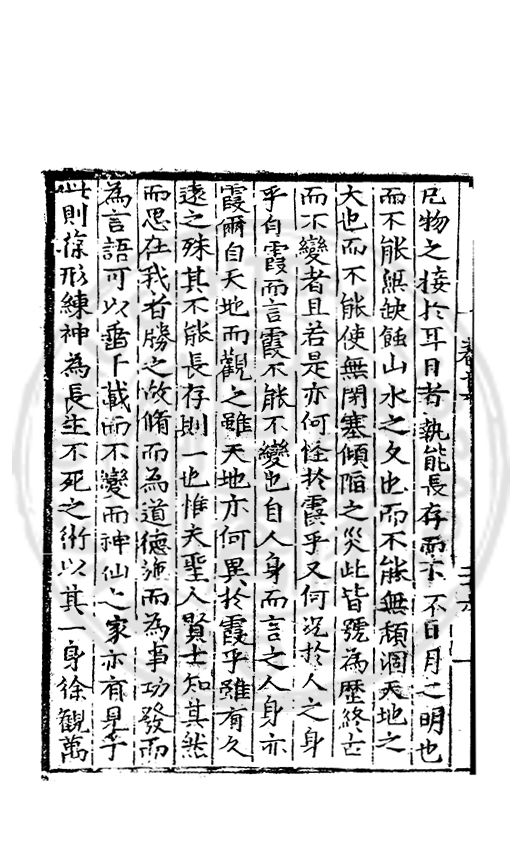 凡物之接於耳目者孰能長存而不 不日月之明也
而不能無缺蝕山水之久也而不能無頹涸天地之
大也而不能使無閉塞傾陷之災此皆號為歷終古
而不變者且若是亦何怪於霞乎又何況於人之身
乎自霞而言霞不能不變也自人身而言之人身亦
霞爾自天地而觀之雖天地亦何異於霞乎雖有久
遠之殊其不能長存則一也惟夫聖人賢士知其然
而思在我者勝之故脩而為道德施而為事功發而
為言語可以垂千載而不變而神仙之家亦有見乎
此則徐形練神為長生不死之術以其一身徐觀萬